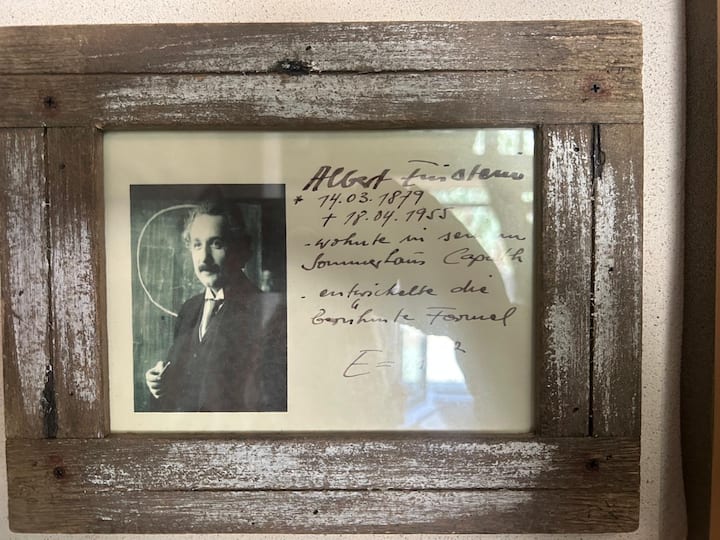 Albert Einstein
* 14.03.1879
+ 18.04.1955
- wohnte in
Sommerhaus Caputh
- entwickelte die
berühmte Formel
E= ²